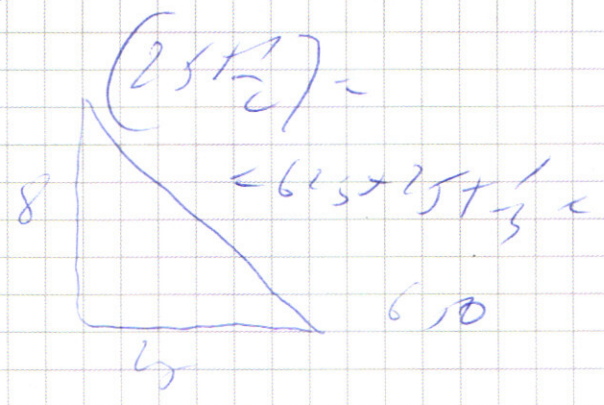 (25+1/2) =
= 625+25+1/3 =
8
6,50